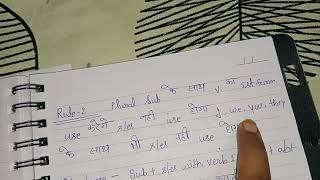 Rule-2 Plural Sub के साथ V₁ का 1st form
use करेंगे s/es नही use होगा I, we, you, they
के साथ भी s/es नही use होगा
Sub + s/es with verb